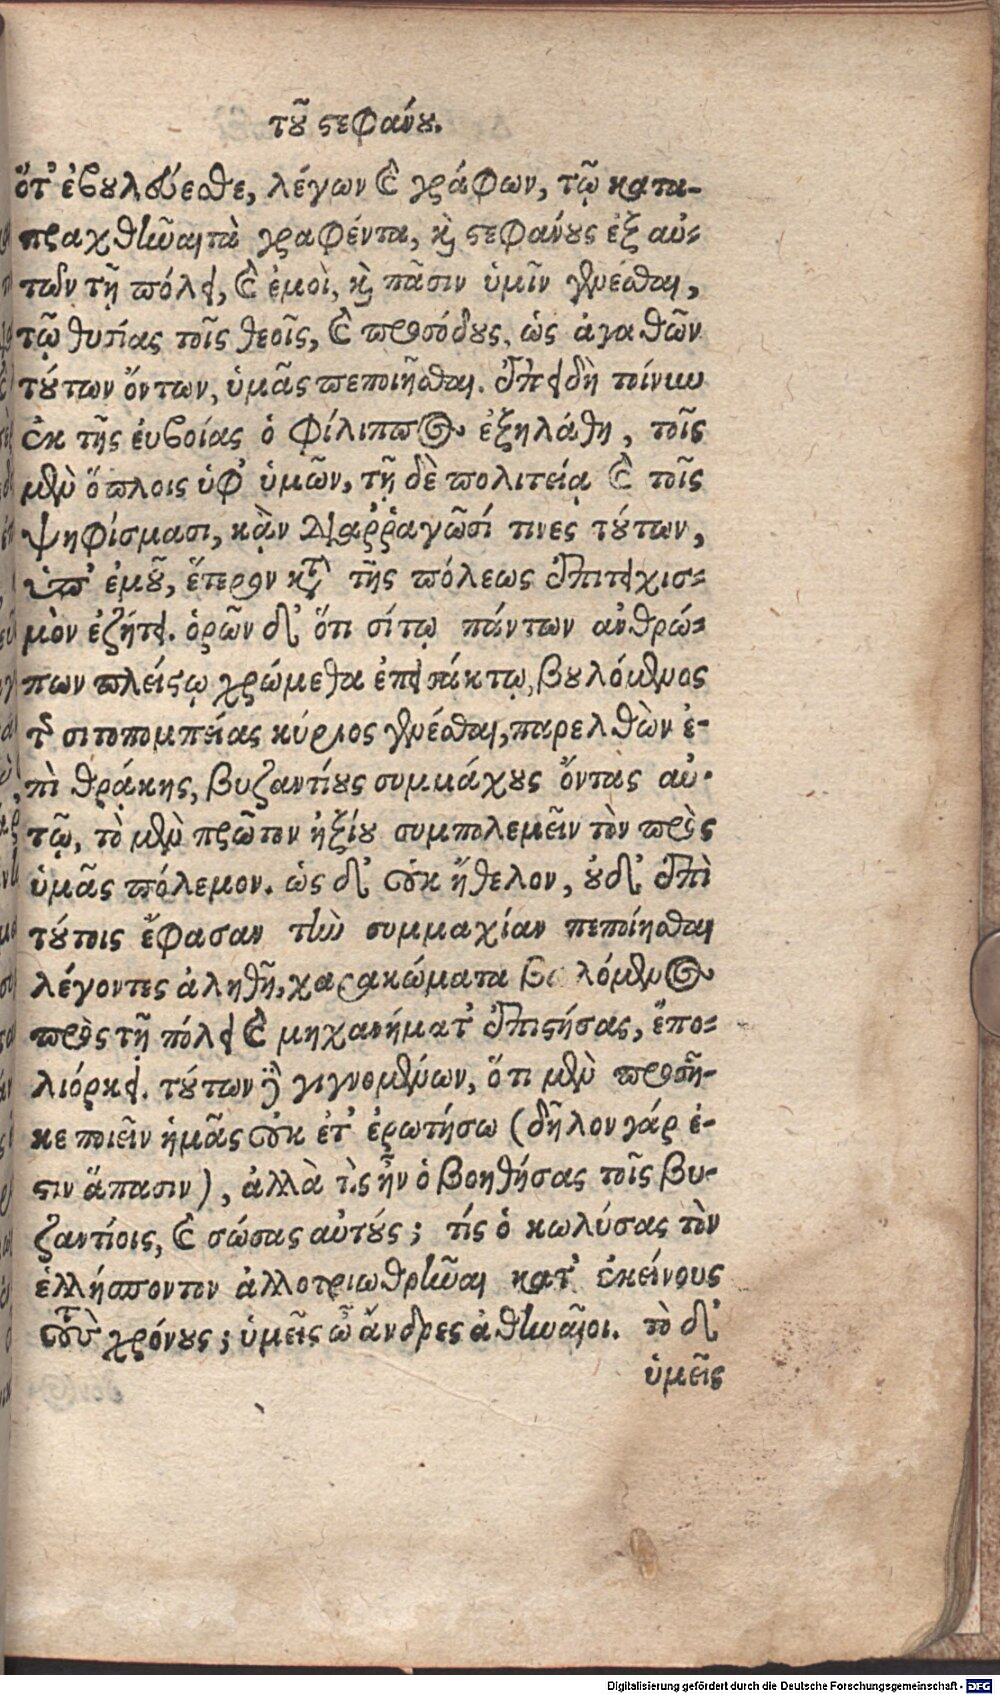 τοῦ στεφάνου.
ὅτ' ἐβουλεύεσθε, λέγων καὶ γράφων, τῷ κατα-
πραχθῆναι τὰ γραφέντα, καὶ στεφάνους ἐξ αὐ-
τῶν τῇ πόλει, καὶ ἐμοὶ, καὶ πᾶσιν ὑμῖν γενέσθαι,
τῷ θυσίας τοῖς θεοῖς, καὶ προσόδους, ὡς ἀγαθῶν
τούτων ὄντων, ὑμᾶς πεποιῆσθαι. ἐπειδὴ τοίνυν
ἐκ τῆς εὐβοίας ὁ Φίλιππος ἐξηλάθη, τοῖς
μὲν ὅπλοις ὑφ' ὑμῶν, τῇ δὲ πολιτείᾳ καὶ τοῖς
ψηφίσμασι, κᾂν διαῤῥαγῶσί τινες τούτων,
ὑπ' ἐμοῦ, ἕτερον κατὰ τῆς πόλεως ἐπιτειχισ-
μὸν ἐζήτει. ὁρῶν δ' ὅτι σίτῳ πάντων ἀνθρώ-
πων πλείστῳ χρώμεθα ἐπεισάκτῳ, βουλόμενος
τῆς σιτοπομπείας κύριος γενέσθαι, παρελθὼν ἐ-
πὶ θρᾴκης, βυζαντίους συμμάχους ὄντας αὐ-
τῷ, τὸ μὲν πρῶτον ἠξίου συμπολεμεῖν τὸν πρὸς
ὑμᾶς πόλεμον. ὡς δ' οὐκ ἤθελον, οὐδ' ἐπὶ
τούτοις ἔφασαν τὴν συμμαχίαν πεποίησθαι
λέγοντες ἀληθῆ, χαρακώματα βαλόμενος
πρὸς τῇ πόλει καὶ μηχανήματ' ἐπιστήσας, ἐπο-
λιόρκει. τούτων δὲ γιγνομένων, ὅτι μὲν προσῆ-
κε ποιεῖν ἡμᾶς οὐκ ἔτ' ἐρωτήσω (δῆλον γάρ ἐ-
στιν ἅπασιν), ἀλλὰ τὶς ἦν ὁ βοηθήσας τοῖς βυ-
ζαντίοις, καὶ σώσας αὐτούς; τίς ὁ κωλύσας τὸν
ἑλλήσποντον ἀλλοτριωθρῆναι κατ' ἐκείνους
τοὺς χρόνους; ὑμεῖς ὦ ἄνδρες ἀθηναῖοι. τὸ δ'
ὑμεῖς
Digitalisierung gefördert durch die Deutsche Forschungsgemeinschaft - DFG